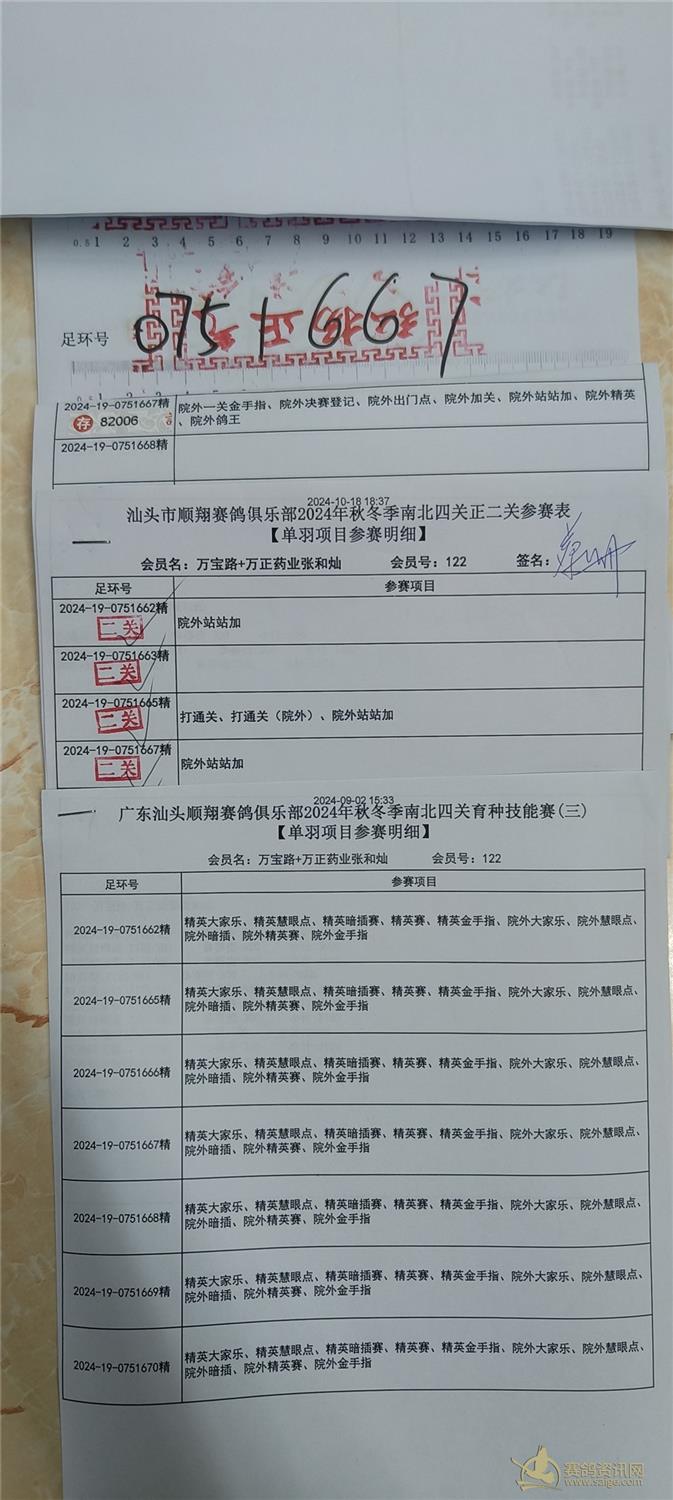 0.5 1 2 3 4 5 6 7 8 9 10 11 12 13 14 15 16 17 18 19
足环号 0751667
2024-19-0751667精 院外一关金手指、院外决赛登记、院外出门点、院外加关、院外站站加、院外精英
存 82006 、院外鸽王
2024-19-0751668精
2024-10-18 18:37
汕头市顺翔赛鸽俱乐部2024年秋冬季南北四关正二关参赛表
【单羽项目参赛明细】
会员名：万宝路+万正药业张和灿 会员号：122 签名：
足环号 参赛项目
2024-19-0751662精
二关 院外站站加
2024-19-0751663精
二关
2024-19-0751665精
二关 打通关、打通关（院外）、院外站站加
2024-19-0751667精
二关 院外站站加
2024-09-02 15:33
广东汕头顺翔赛鸽俱乐部2024年秋冬季南北四关育种技能赛(三)
【单羽项目参赛明细】
会员名：万宝路+万正药业张和灿 会员号：122
足环号 参赛项目
2024-19-0751662精 精英大家乐、精英慧眼点、精英暗插赛、精英赛、精英金手指、院外大家乐、院外慧眼点、
院外暗插、院外精英赛、院外金手指
2024-19-0751665精 精英大家乐、精英慧眼点、精英暗插赛、精英赛、精英金手指、院外大家乐、院外慧眼点、
院外暗插、院外精英赛、院外金手指
2024-19-0751666精 精英大家乐、精英慧眼点、精英暗插赛、精英赛、精英金手指、院外大家乐、院外慧眼点、
院外暗插、院外精英赛、院外金手指
2024-19-0751667精 精英大家乐、精英慧眼点、精英暗插赛、精英赛、精英金手指、院外大家乐、院外慧眼点、
院外暗插、院外精英赛、院外金手指
2024-19-0751668精 精英大家乐、精英慧眼点、精英暗插赛、精英赛、精英金手指、院外大家乐、院外慧眼点、
院外暗插、院外精英赛、院外金手指
2024-19-0751669精 精英大家乐、精英慧眼点、精英暗插赛、精英赛、精英金手指、院外大家乐、院外慧眼点、
院外暗插、院外精英赛、院外金手指
2024-19-0751670精 精英大家乐、精英慧眼点、精英暗插赛、精英赛、精英金手指、院外大家乐、院外慧眼点、
院外暗插、院外精英赛、院外金手指
赛鸽资讯网
www.saige.com